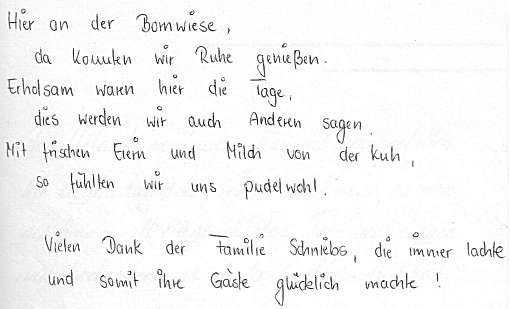 Hier an der Bornwiese,
da konnten wir Ruhe genießen.
Erholsam waren hier die Tage,
dies werden wir auch Anderen sagen.
Mit frischen Eiern und Milch von der Kuh,
so fühlten wir uns pudelwohl.
Vielen Dank der Familie Schniebs, die immer lachte
und somit ihre Gäste glücklich machte!